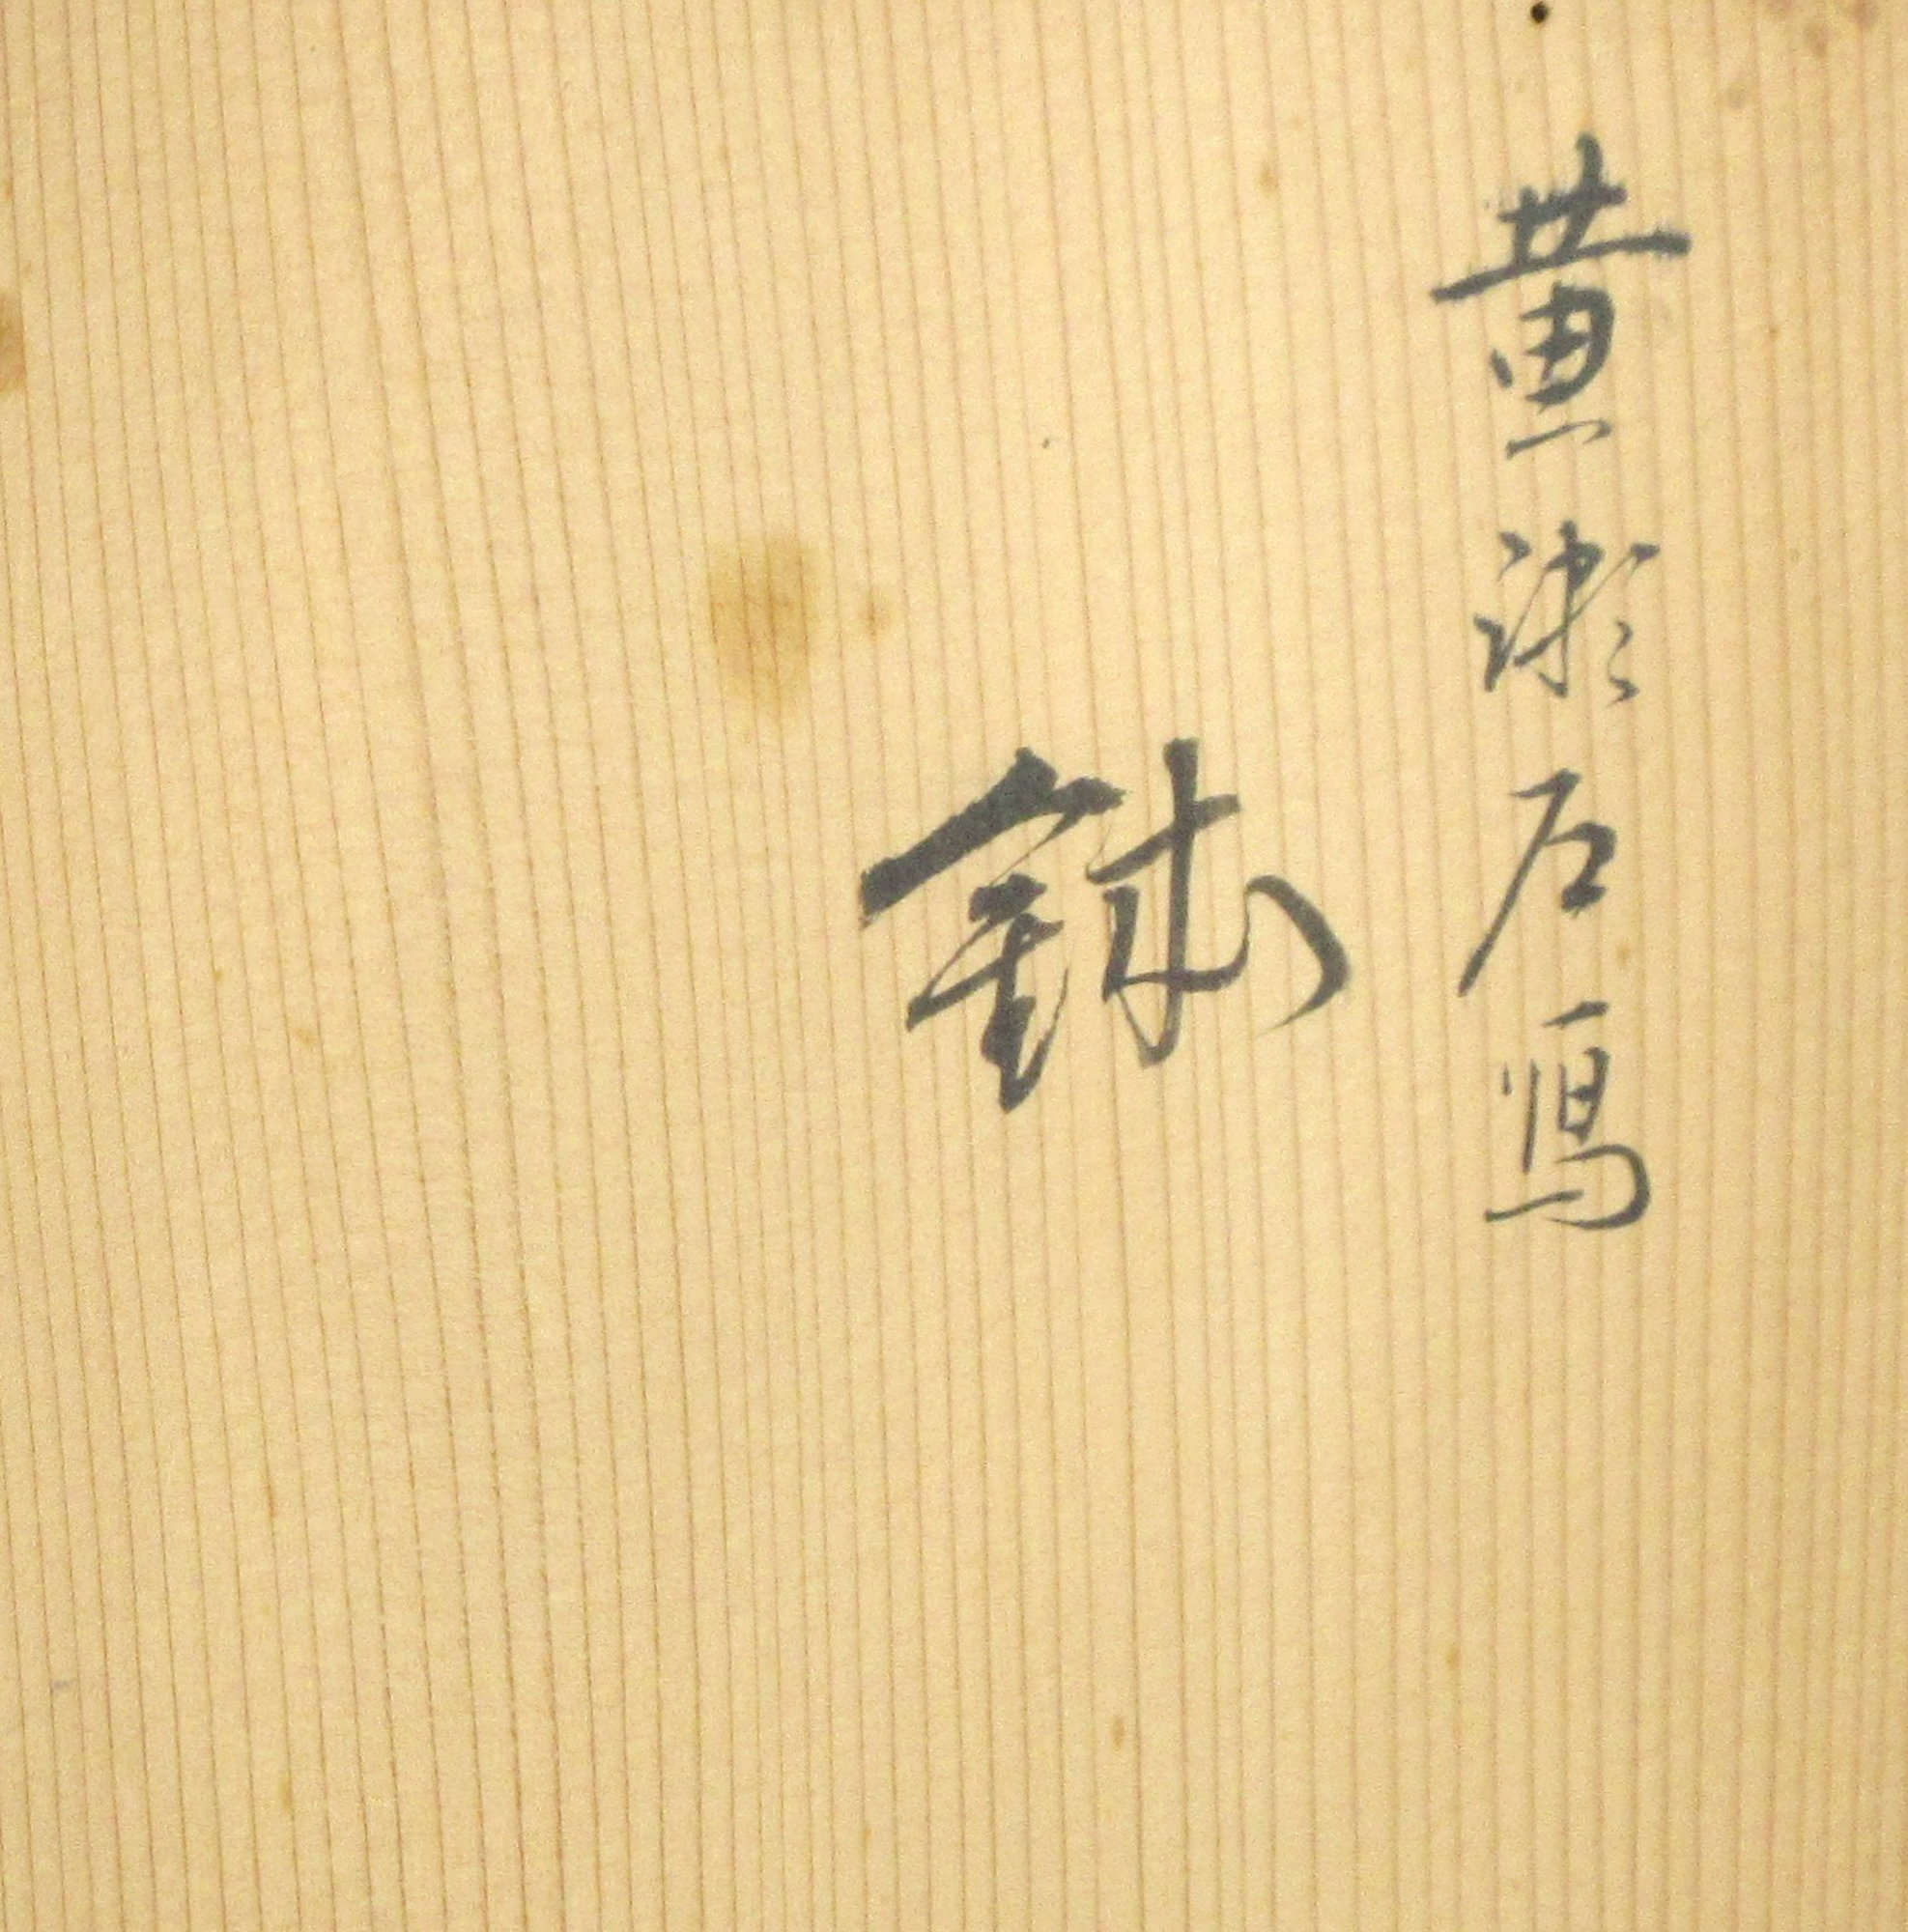 黄瀬戸冩
鉢